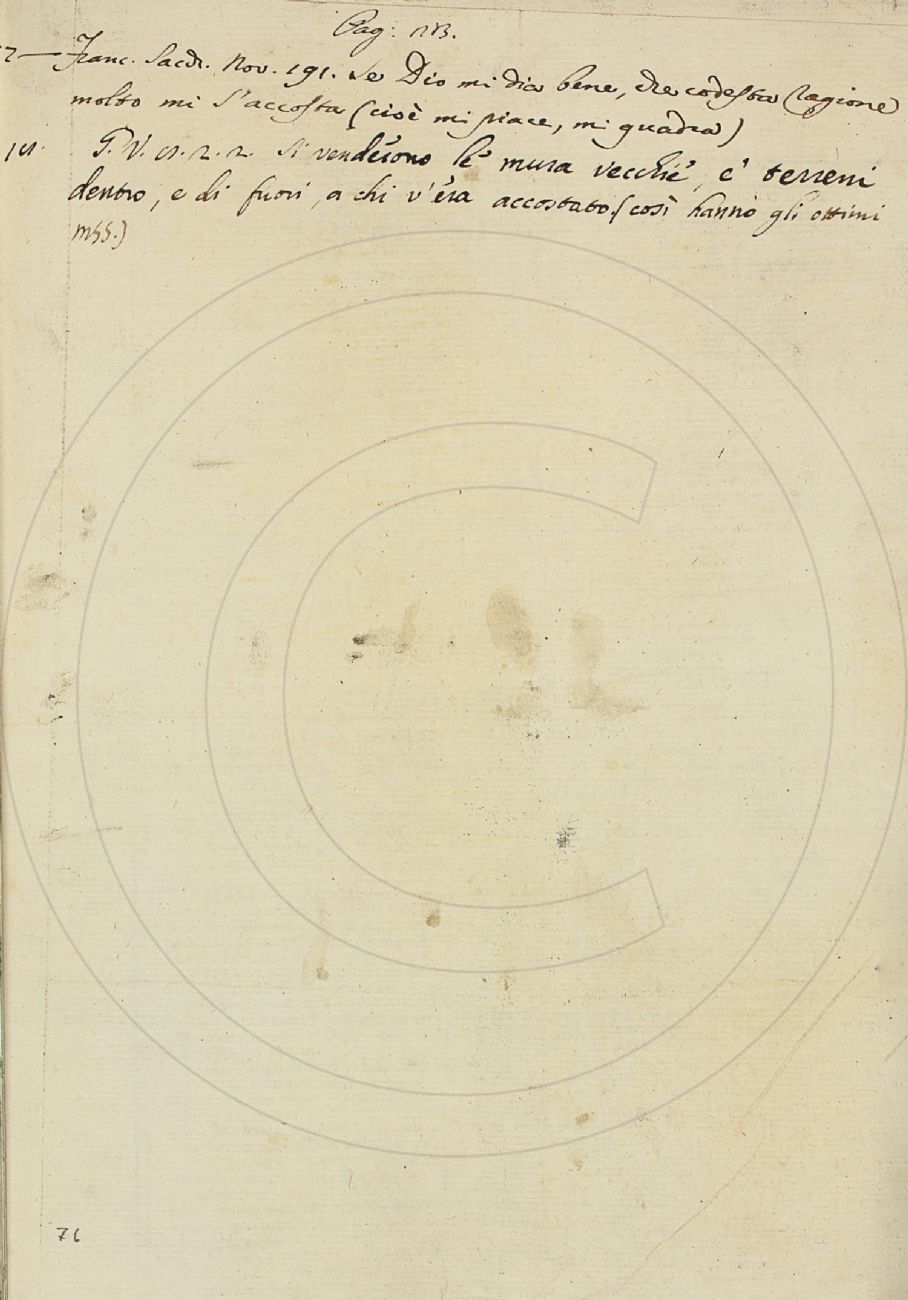 Pag:
Franc. Sacch. Nov. 191. Se Dio mi dia bene, che codesta ragione
molto mi s'accosta (cioè mi piace, mi quadra)
G. V. 9. 2. 2. Si vendèrono le mura vecchie, e' terreni
dentro, e di fuori, a chi v'era accostato (così hanno gli ottimi
mss.)
76